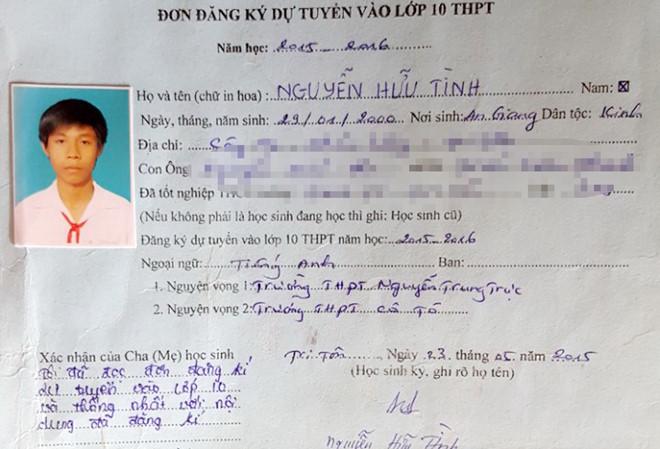 ĐƠN ĐĂNG KÝ DỰ TUYỂN VÀO LỚP 10 THPT
Năm học: 2015 - 2016
Họ và tên (chữ in hoa): NGUYỄN HỮU TÌNH Nam: ☒
Ngày, tháng, năm sinh: 29/01/2000 Nơi sinh: An Giang Dân tộc: Kinh
Địa chỉ:
Con Ông
Đã tốt nghiệp
(Nếu không phải là học sinh đang học thì ghi: Học sinh cũ)
Đăng ký dự tuyển vào lớp 10 THPT năm học: 2015-2016
Ngoại ngữ: Tiếng Anh Ban:
1. Nguyện vọng 1: Trường THPT Nguyễn Trung Trực
2. Nguyện vọng 2: Trường THPT Cô Tô
Xác nhận của Cha (Mẹ) học sinh
Tri Tôn, Ngày 23 tháng 05 năm 2015
Tôi đã đọc đơn đăng kí
(Học sinh ký, ghi rõ họ tên)
dự tuyển vào lớp 10
và thống nhất với nội
dung đã đăng kí
Nguyễn Hữu Tình